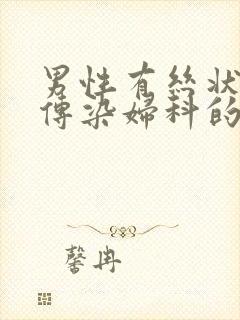 男性有丝状
传染妇科的
馨冉